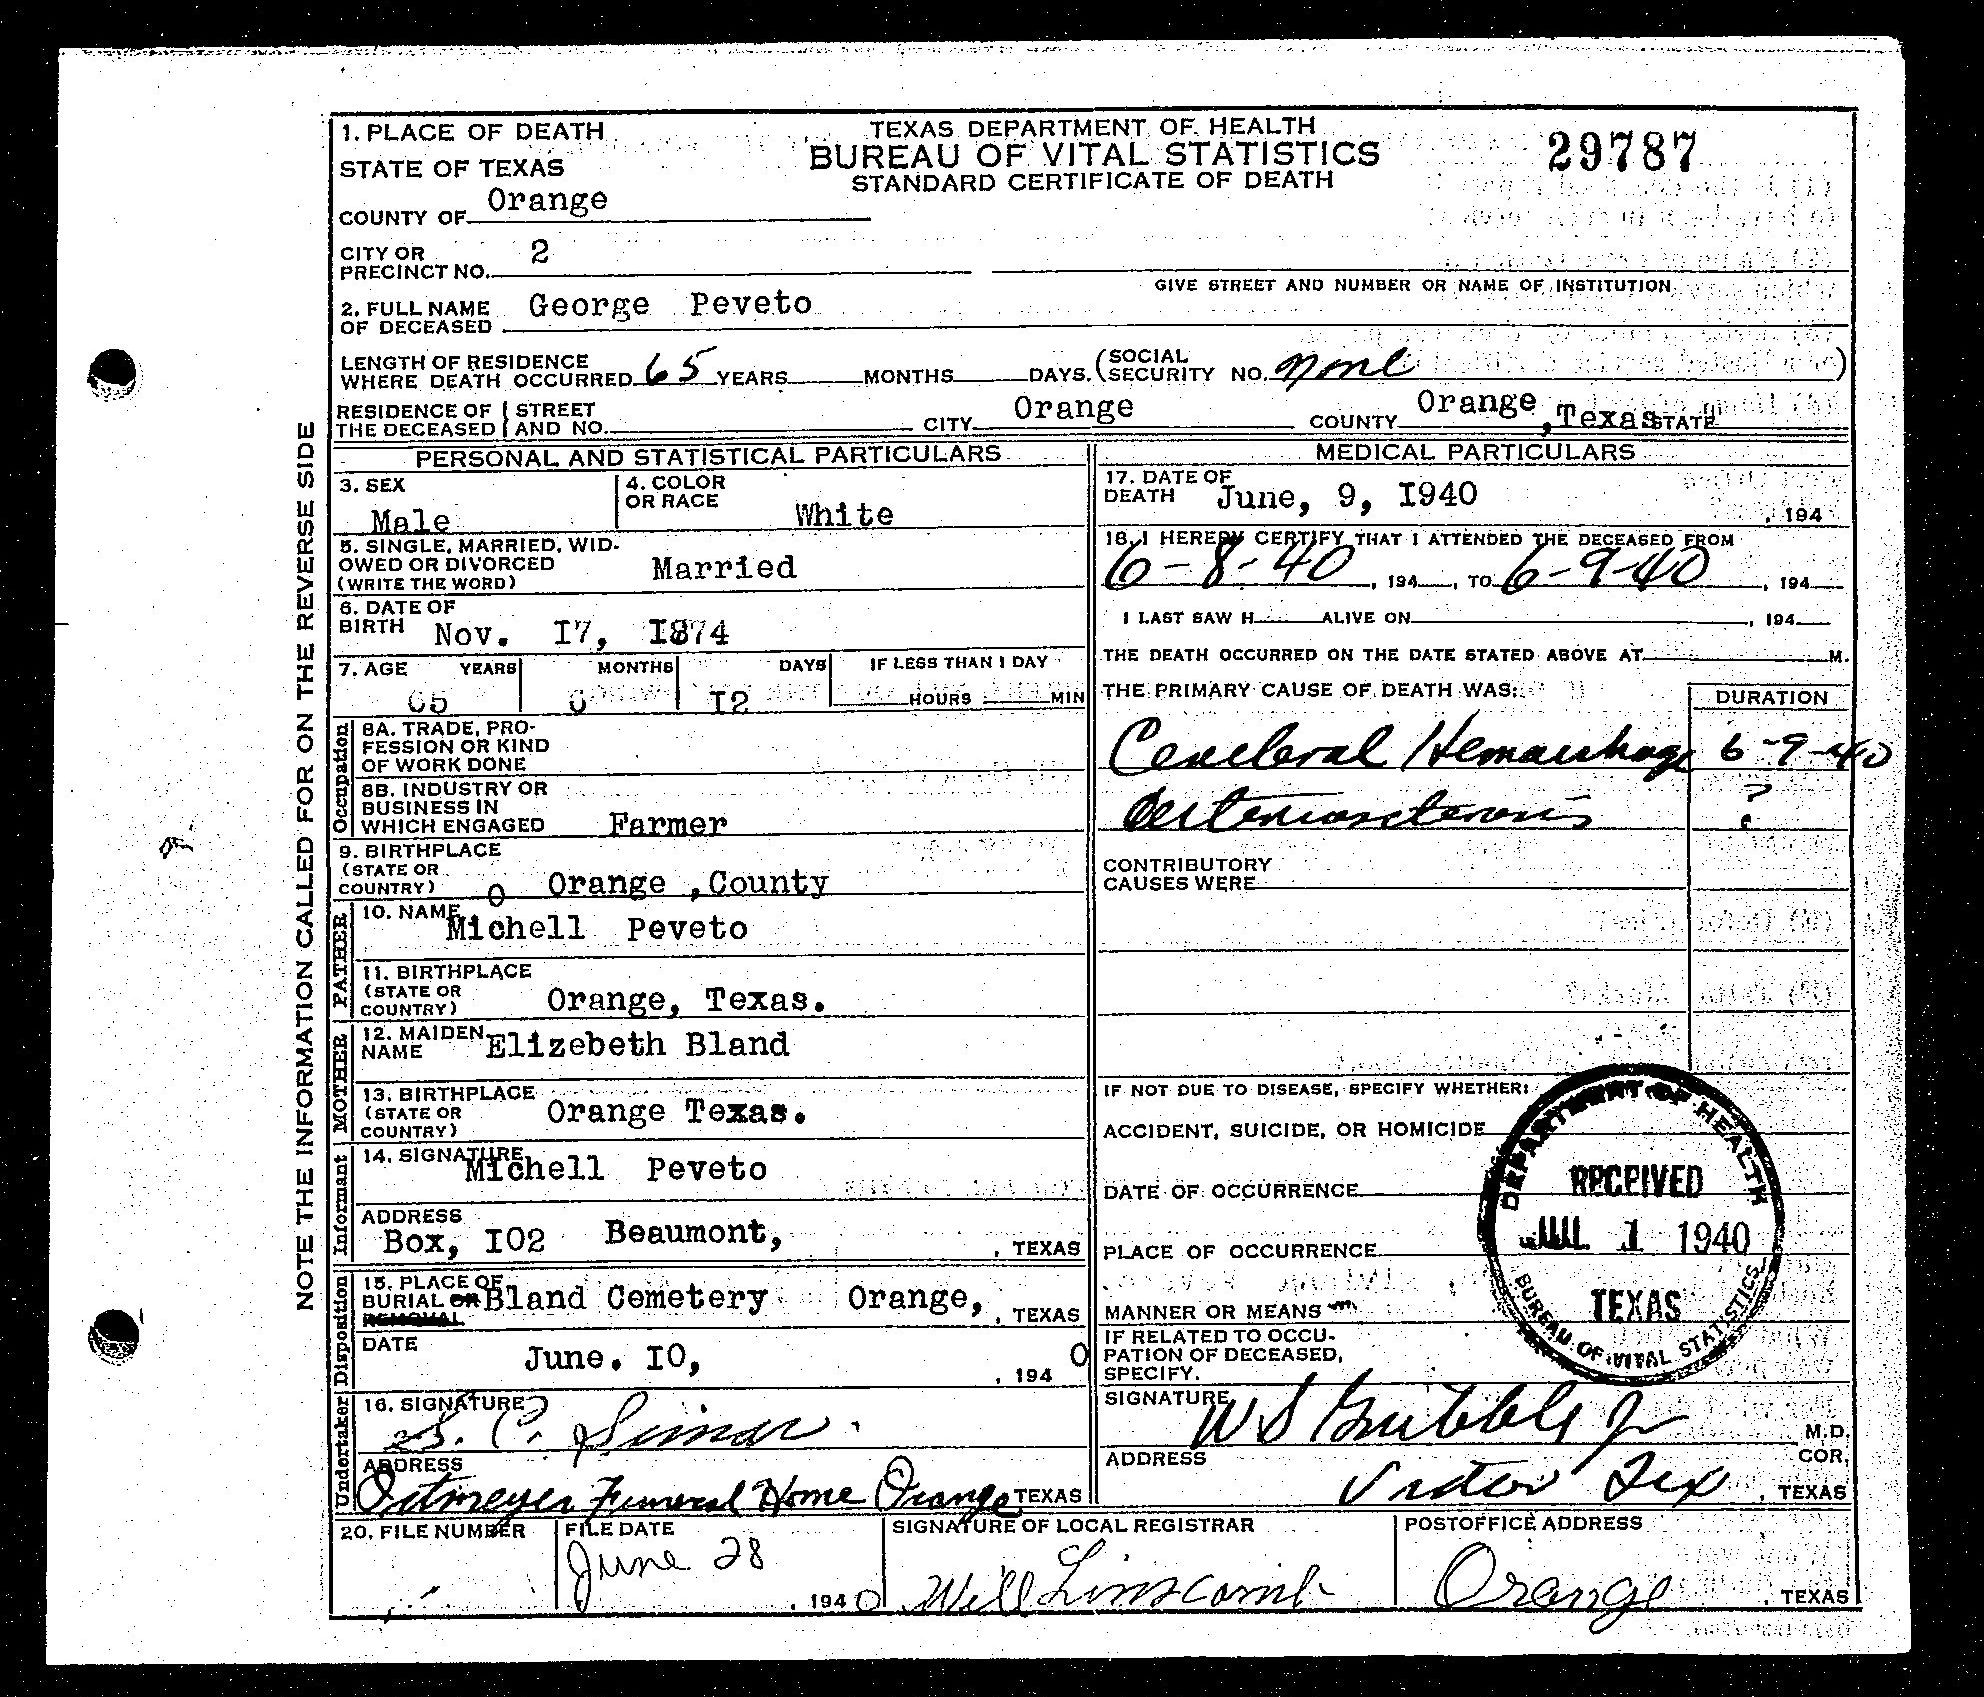 1. PLACE OF DEATH
STATE OF TEXAS
COUNTY OF Orange
CITY OR
PRECINCT NO. 2
TEXAS DEPARTMENT OF HEALTH
BUREAU OF VITAL STATISTICS
STANDARD CERTIFICATE OF DEATH
29787
GIVE STREET AND NUMBER OR NAME OF INSTITUTION
2. FULL NAME
OF DECEASED George Peveto
LENGTH OF RESIDENCE
WHERE DEATH OCCURRED 65 YEARS MONTHS DAYS. (SOCIAL
SECURITY NO. none )
RESIDENCE OF THE DECEASED { STREET AND NO. CITY Orange COUNTY Orange ,Texas STATE
NOTE THE INFORMATION CALLED FOR ON THE REVERSE SIDE
PERSONAL AND STATISTICAL PARTICULARS
3. SEX
Male
4. COLOR
OR RACE
White
5. SINGLE, MARRIED, WID-
OWED OR DIVORCED
(WRITE THE WORD)
Married
6. DATE OF
BIRTH Nov. I7, I874
7. AGE YEARS MONTHS DAYS IF LESS THAN 1 DAY
65 6 I2 HOURS MIN
Occupation
8A. TRADE, PRO-
FESSION OR KIND
OF WORK DONE
8B. INDUSTRY OR
BUSINESS IN
WHICH ENGAGED Farmer
9. BIRTHPLACE
(STATE OR
COUNTRY) O Orange ,County
FATHER
10. NAME
Michell Peveto
11. BIRTHPLACE
(STATE OR
COUNTRY) Orange, Texas.
MOTHER
12. MAIDEN
NAME Elizebeth Bland
13. BIRTHPLACE
(STATE OR
COUNTRY) Orange Texas.
Informant
14. SIGNATURE
Michell Peveto
ADDRESS
Box, I02 Beaumont, , TEXAS
Disposition
15. PLACE OF
BURIAL OR
REMOVAL
Bland Cemetery Orange, , TEXAS
DATE
June. I0, , 194 0
Undertaker
16. SIGNATURE
S. C. Simar
ADDRESS
Funeral Home Orange TEXAS
MEDICAL PARTICULARS
17. DATE OF
DEATH June, 9, I940 , 194
18. I HEREBY CERTIFY THAT I ATTENDED THE DECEASED FROM
6-8-40 , 194 , TO 6-9-40 , 194
I LAST SAW H ALIVE ON , 194
THE DEATH OCCURRED ON THE DATE STATED ABOVE AT M.
THE PRIMARY CAUSE OF DEATH WAS:
DURATION
Cerebral Hemorrhage 6-9-40
Arteriosclerosis ?
CONTRIBUTORY
CAUSES WERE
IF NOT DUE TO DISEASE, SPECIFY WHETHER:
ACCIDENT, SUICIDE, OR HOMICIDE
DATE OF OCCURRENCE
PLACE OF OCCURRENCE
MANNER OR MEANS
IF RELATED TO OCCU-
PATION OF DECEASED,
SPECIFY.
DEPARTMENT OF HEALTH
RECEIVED
JUL 1 1940
TEXAS
BUREAU OF VITAL STATISTICS
SIGNATURE
W S Gribble Jr M.D.
COR.
ADDRESS
Vidor Tex , TEXAS
20. FILE NUMBER
FILE DATE
June 28
, 194 0
SIGNATURE OF LOCAL REGISTRAR
Will Linscomb
POSTOFFICE ADDRESS
Orange , TEXAS